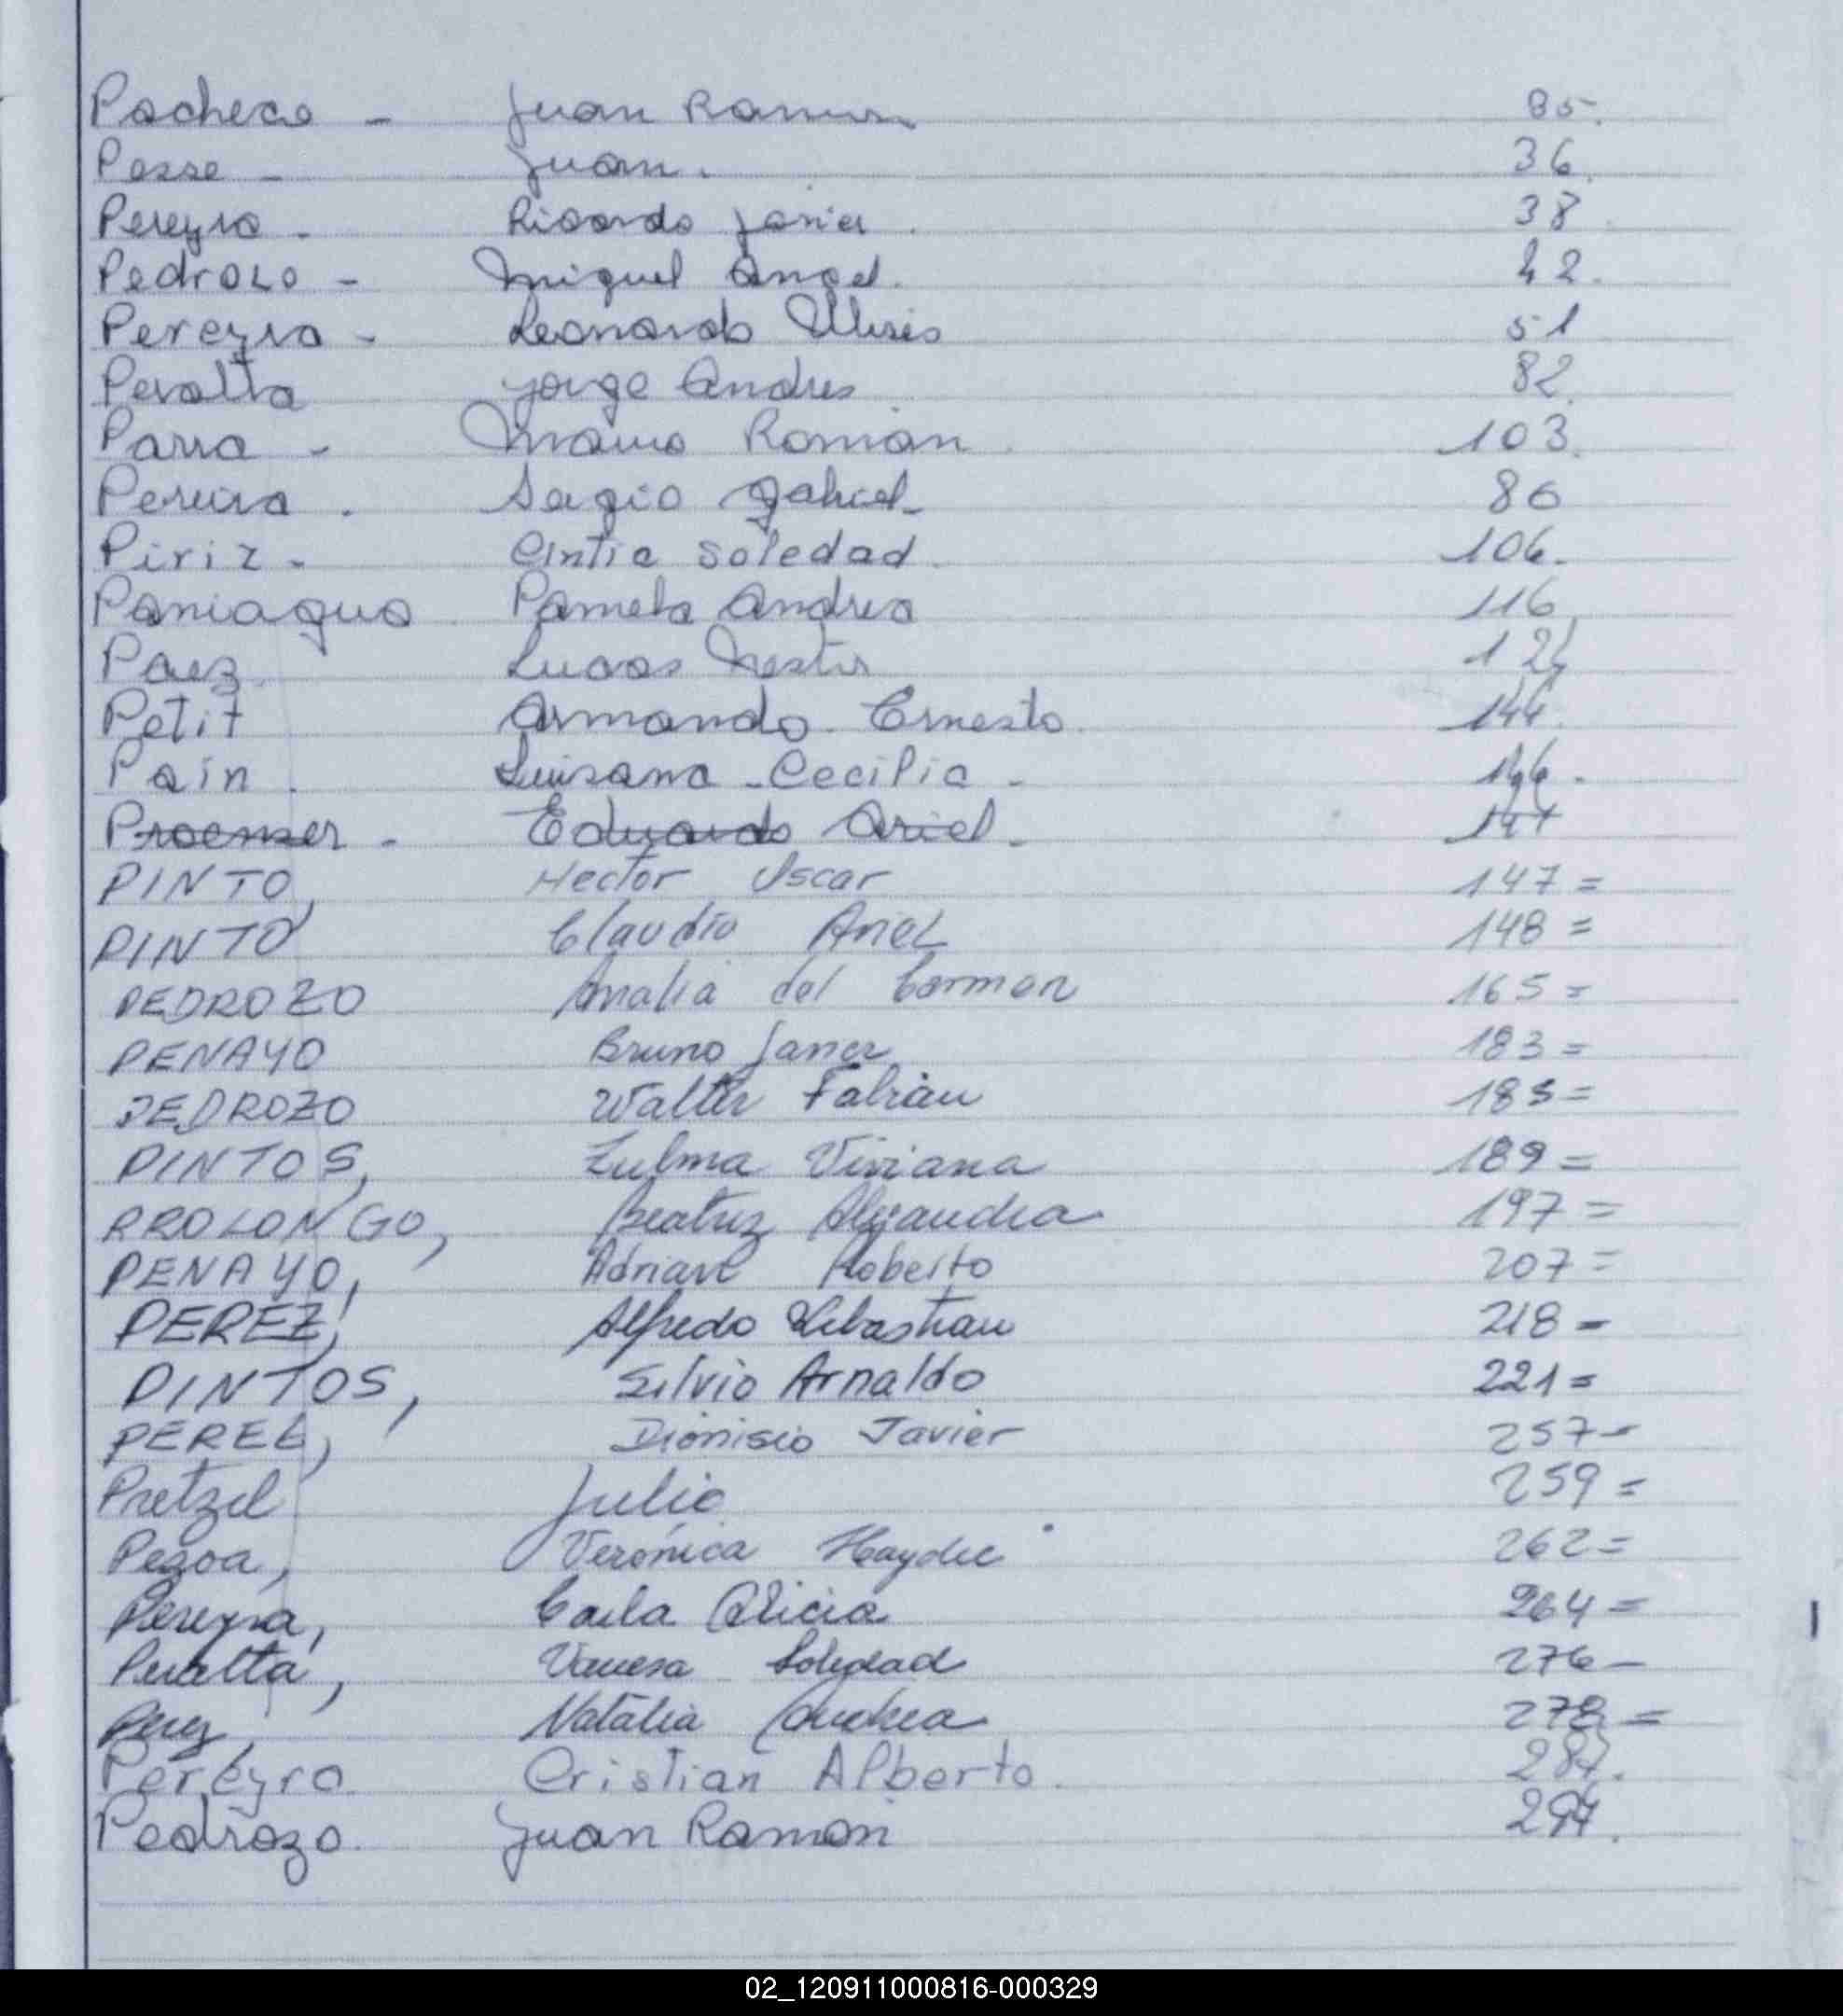 Pacheco - Juan Ramon 85.
Pesse - Juan. 36.
Pereyra - Ricardo Javier. 38
Pedrozo - Miguel Angel. 42.
Pereyra - Leonardo Ulises 51
Peralta Jorge Andres 82.
Parra - Mario Roman. 103.
Pereira. Sergio Gabriel- 86
Piriz - Cintia Soledad. 106.
Paniagua Pamela Andrea 116
Paez. Lucas Nestor
Petit Armando Ernesto 144.
Pain. Luisana - Cecilia - 146.
Proemer - Eduardo Ariel. 147
PINTO, Hector Oscar 147 =
PINTO Claudio Ariel 148 =
PEDROZO Analia del Carmen 165 =
PENAYO Bruno Javier 183 =
PEDROZO Walter Fabian 185 =
PINTOS, Zulma Viviana 189 =
PROLONGO, Beatriz Alejandra 197 =
PENAYO, Adrian Roberto 207 =
PEREZ, Alfredo Sebastian 218 =
PINTOS, Silvio Arnaldo 221 =
PEREZ, Dionisio Javier 257 =
Pretzel Julio 259 =
Pezoa, Verónica Haydee 262 =
Pereyra, Carla Alicia 264 =
Peralta, Vanesa Soledad 276 -
Perez, Natalia Andrea 278 =
Pereyra. Cristian Alberto. 287.
Pedrozo. Juan Ramon
02_120911000816-000329